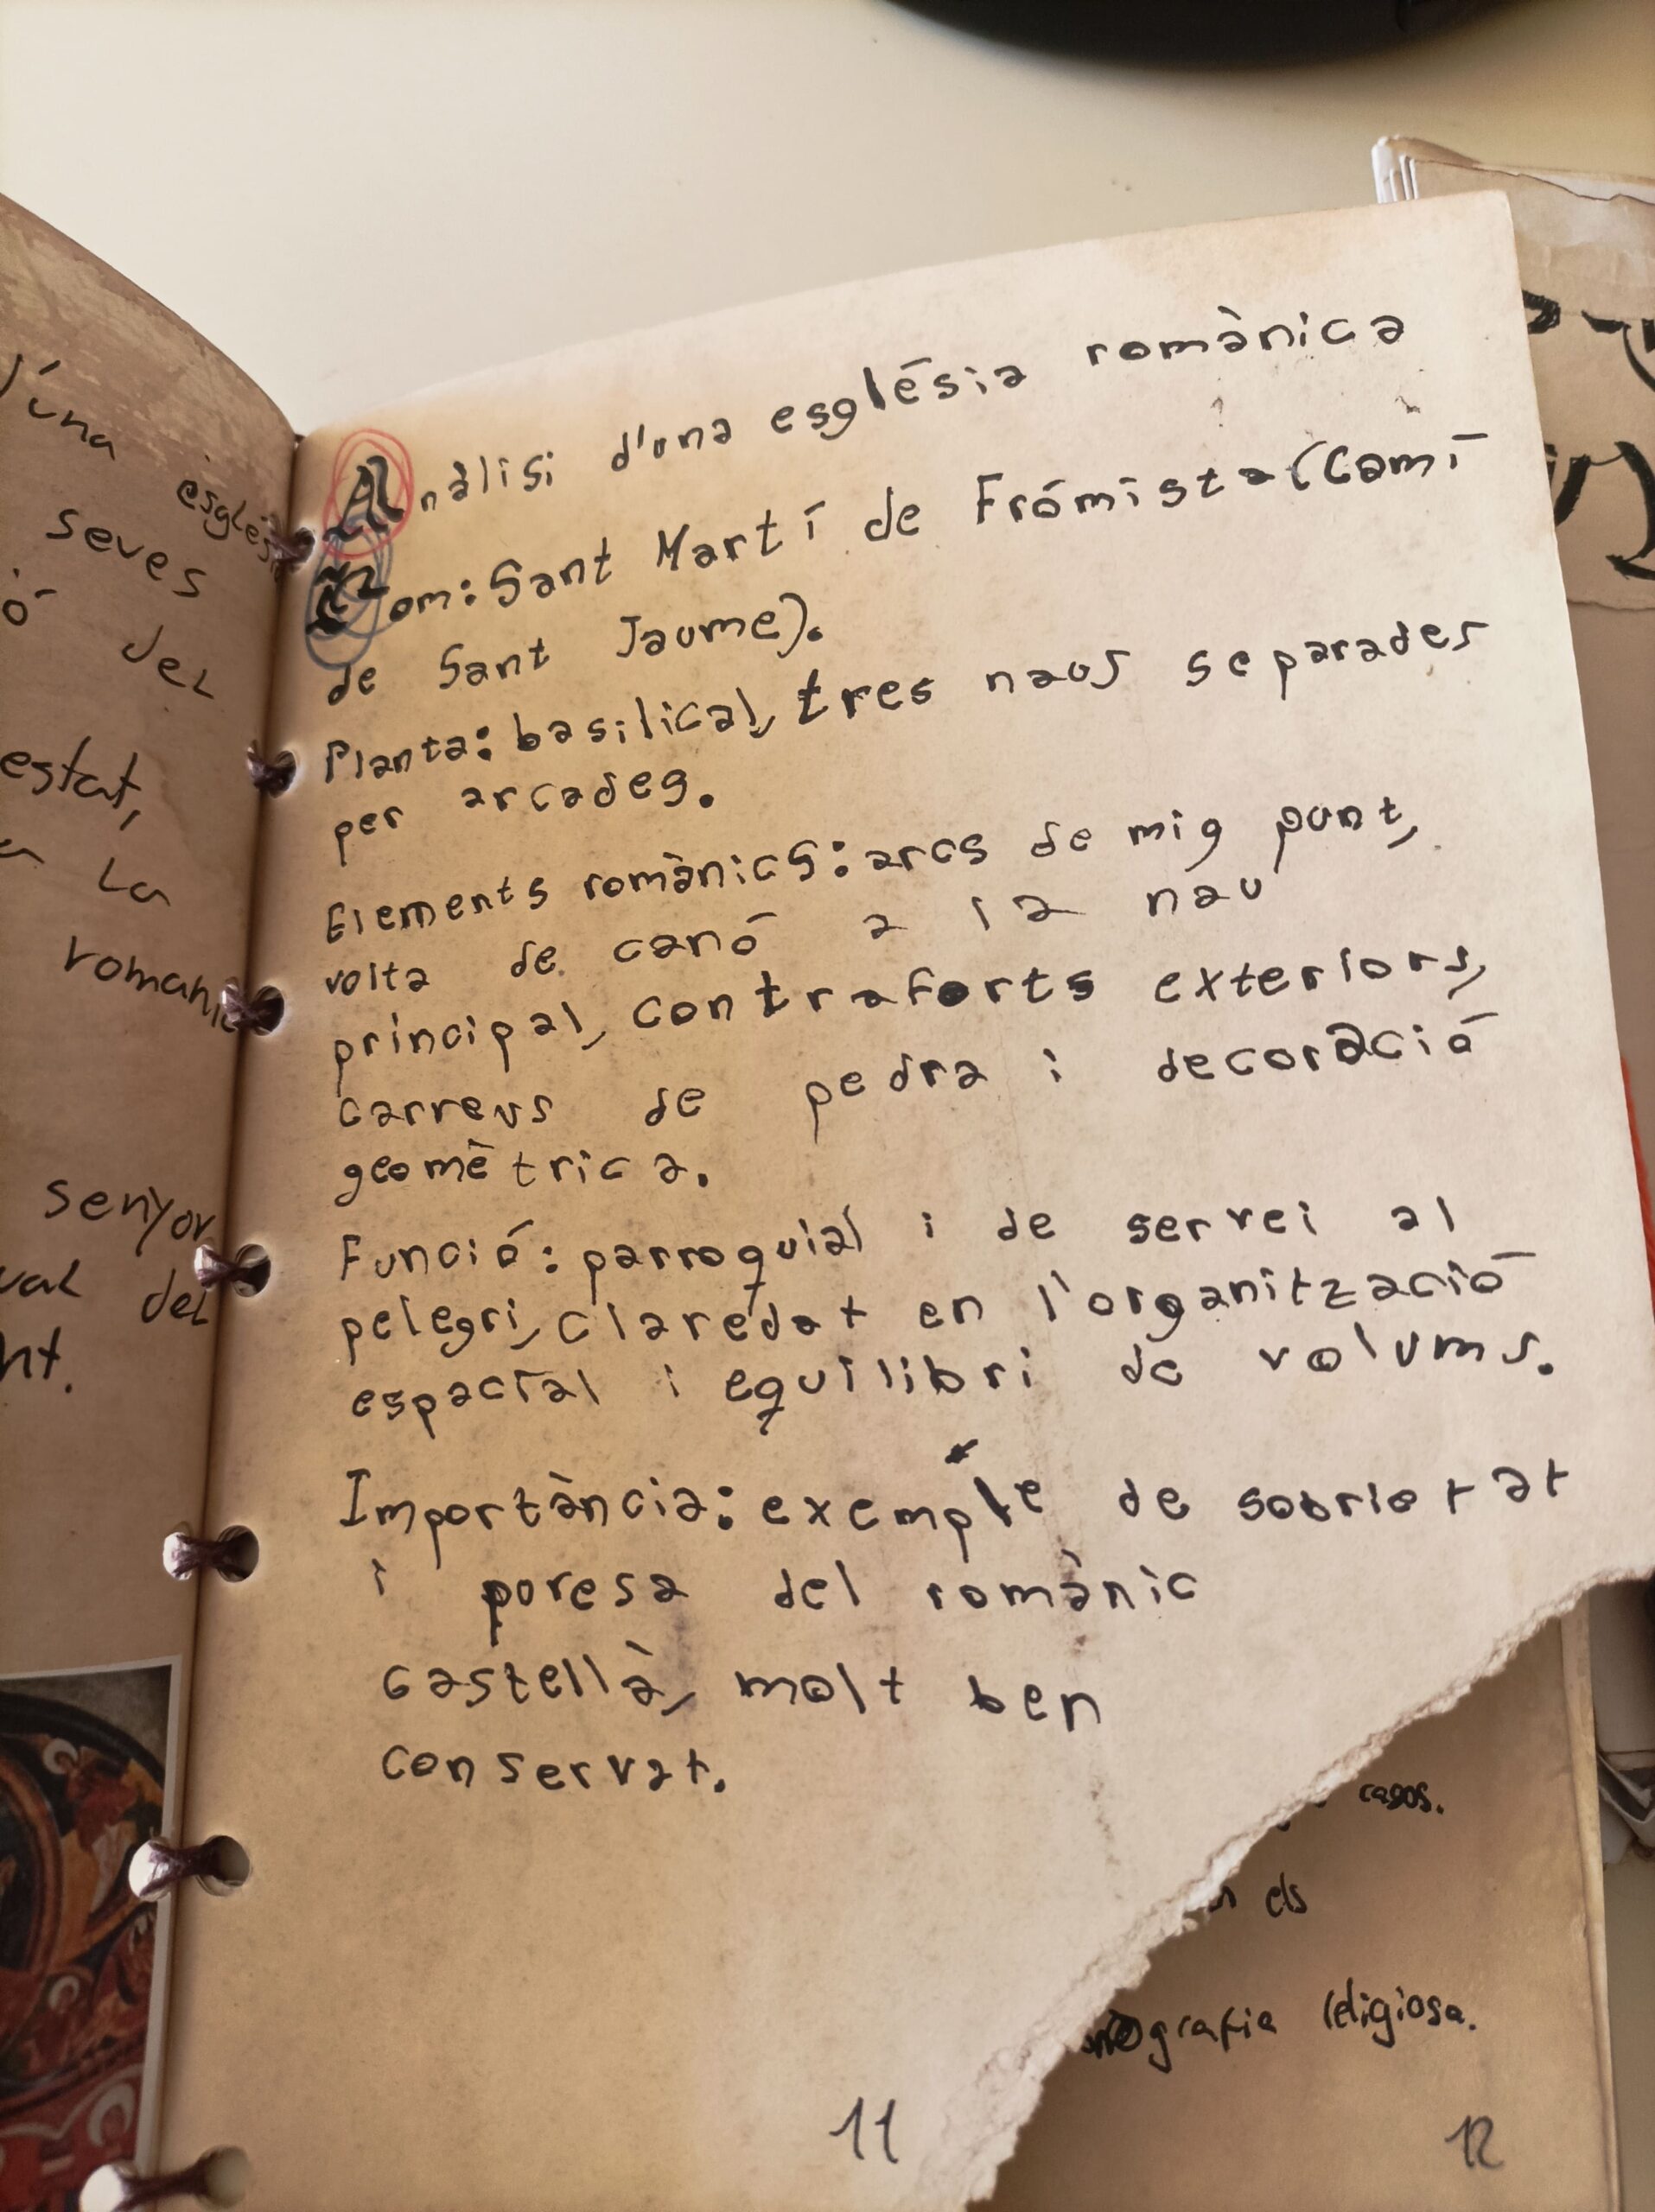 d'una esglés
seves
ó del
estat,
a la
romàni
senyor
val del
nt.
Anàlisi d'una església romànica
Nom: Sant Martí de Frómista (Camí
de Sant Jaume).
Planta: basilical, tres naus separades
per arcades.
Elements romànics: arcs de mig punt,
volta de canó a la nau
principal, contraforts exteriors,
carreus de pedra i decoració
geomètrica.
Funció: parroquial i de servei al
pelegrí, claredat en l'organització
espacial i equilibri de volums.
Importància: exemple de sobrietat
i puresa del romànic
castellà, molt ben
conservat.
11
casos.
els
nografia religiosa.
12